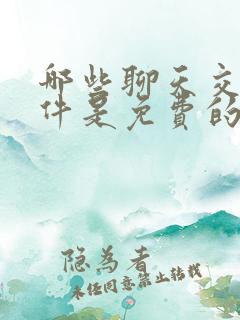 哪些聊天交
件是免费的
隐为者
未经同意禁止转载